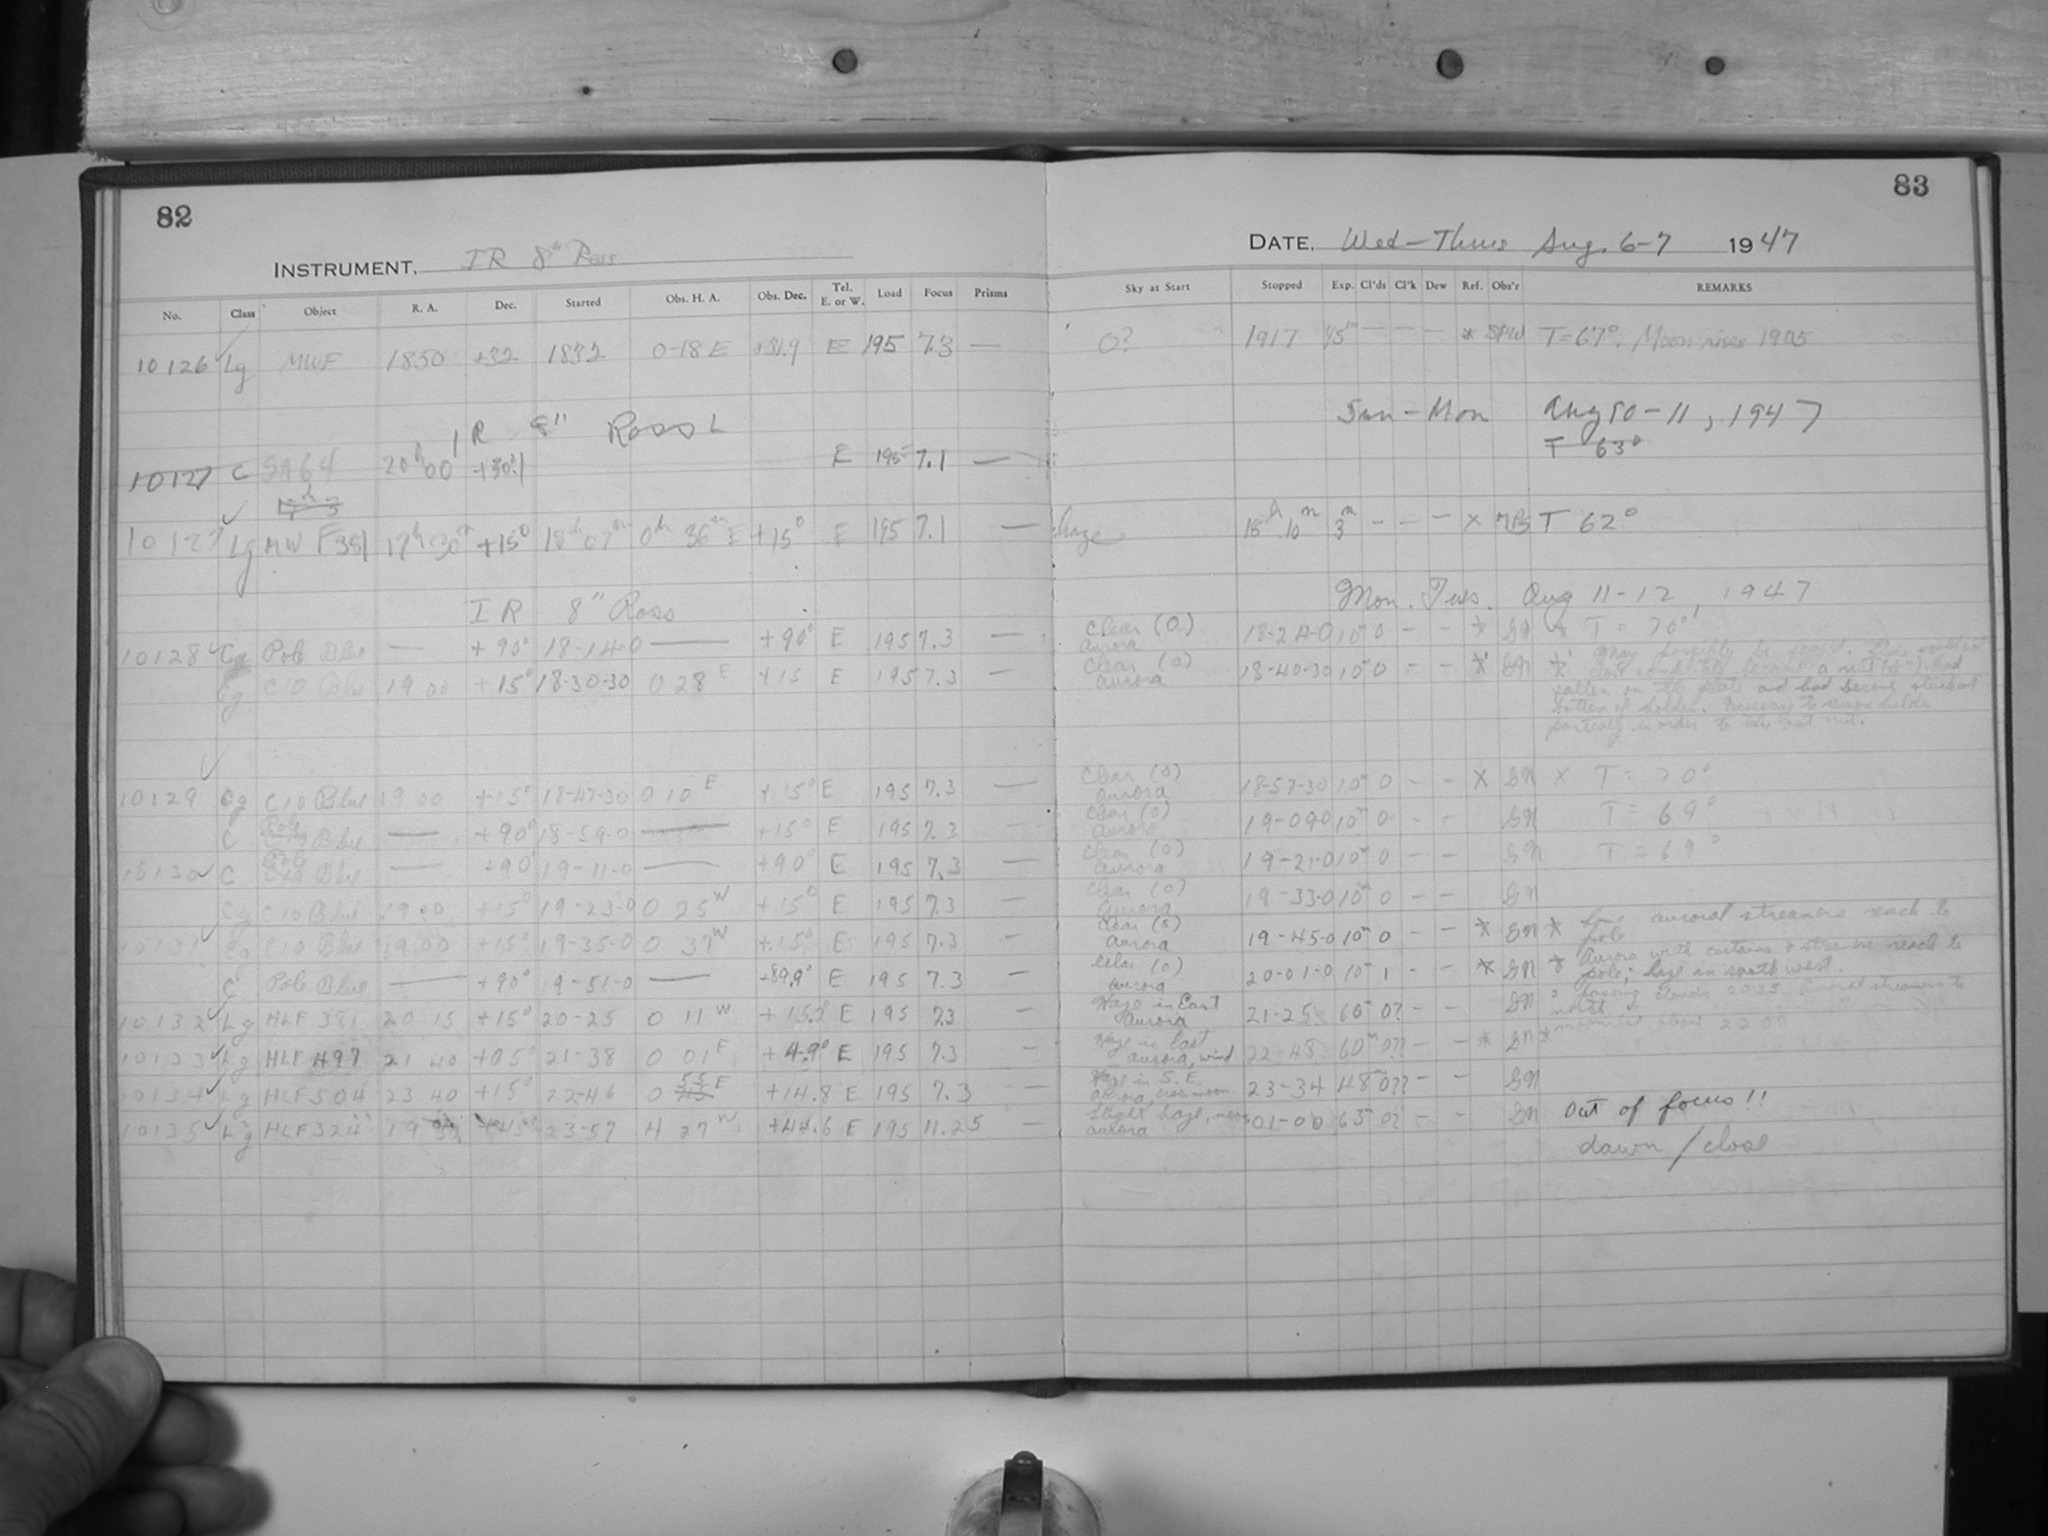 82
INSTRUMENT. IR 8" Ross
No. Class Object R. A. Dec. Started Obs. H. A. Obs. Dec. Tel. E. or W. Load Focus Prisms
10126 Lg MWF 1850 +32 1832 0-18 E +31.9 E 195 7.3 —
IR 8" Ross L
10127 C SA64 20h00 +30.1 E 195 7.1 —
10127 Lg MW F381 17h 30m +15° 18h 07m 0h 36m E +15° E 195 7.1 —
IR 8" Ross
10128 Cg Pole Blue — +90° 18-14-0 — +90° E 195 7.3 —
Cg C10 Blue 19 00 +15° 18-30-30 0 28 E +15 E 195 7.3 —
10129 Cg C10 Blue 19 00 +15° 18-47-30 0 10 E +15° E 195 7.3 —
C Pole Blue — +90° 18-59-0 — +15° E 195 7.3 —
10130 C Pole Blue — +90° 19-11-0 — +90° E 195 7.3 —
Cg C10 Blue 19 00 +15° 19-23-0 0 25 W +15° E 195 7.3 —
10131 Cg C10 Blue 19 00 +15° 19-35-0 0 37 W +15° E 195 7.3 —
C Pole Blue — +90° 19-51-0 — +89.9° E 195 7.3 —
10132 Lg HLF 381 20 15 +15° 20-25 0 11 W E 195 7.3 —
10133 Lg HLF 497 21 40 +05° 21-38 0 01 E +4.9° E 195 7.3 —
10134 Lg HLF 504 23 40 +15° 22-46 0 55 E +14.8 E 195 7.3 —
10135 Lg HLF 324 19 +45° 23-57 4 27 W +44.6 E 195 11.25 —
83
DATE. Wed-Thurs Aug. 6-7 1947
Sky at Start Stopped Exp. Cl'ds Cl'k Dew Ref. Obs'r REMARKS
0? 1917 45m — — — * SPW T=67°. Moon rises 1905
Sun - Mon Aug 10-11, 1947
T 63°
haze 18h 10m 3m — — — x MB T 62°
Mon. Tues. Aug 11-12, 1947
clear (0) aurora 18-24-0 10m 0 — — * GN * T = 70°
clear (0) aurora 18-40-30 10m 0 — — *' GN *' May possibly be
fallen on the plate and had become stuck at
bottom of holder. Necessary to remove holder
partially in order to take out nut.
Clear (0) aurora 18-57-30 10m 0 — — x GN x T = 70°
Clear (0) aurora 19-09-0 10m 0 — — GN T = 69°
Clear (0) aurora 19-21-0 10m 0 — — GN T = 69°
Clear (0) aurora 19-33-0 10m 0 — — GN
Clear (0) aurora 19-45-0 10m 0 — — * GN * auroral streamers reach to
pole
Clear (0) aurora 20-01-0 10m 1 — — * GN * Aurora with curtains & streamers reach to
pole; haze in south west.
Haze in East aurora 21-25 60m 0? — — GN clouds 2035. Auroral streamers to
north
Haze in East aurora, wind 22 48 60m 0?? — — * GN * moonrise about 2200
Haze in S.E. aurora, cres. moon 23-34 48m 0?? — — GN
Slight haze, moon aurora 01-00 63m 0? — — GN Out of focus!!
dawn / close